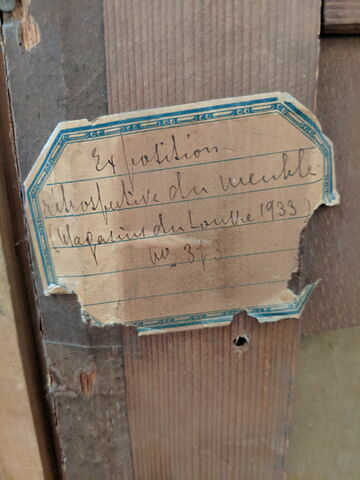 Exposition
rétrospective du meuble
(Magasins du Louvre 1933)
No 373